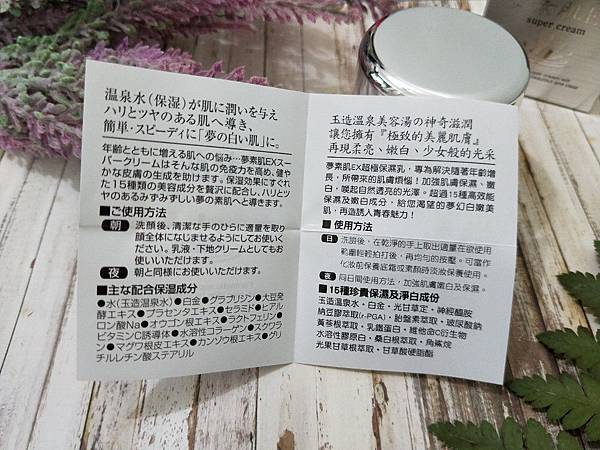 super cream
温泉水(保湿)が肌に潤いを与え
ハリとツヤのある肌へ導き、
簡単・スピーディに「夢の白い肌」に。
年齢とともに増える肌への悩み…夢素肌EXスー
パークリームはそんな肌の免疫力を高め、健や
かな皮膚の生成を助けます。保湿効果にすぐれ
た15種類の美容成分を贅沢に配合し、ハリとツ
ヤのあるみずみずしい夢の素肌へと導きます。
■ご使用方法
朝 洗顔後、清潔な手のひらに適量を取り
顔全体になじませるようにしてお使いく
ださい。乳液・下地クリームとしてもお
使いいただけます。
夜 朝と同様にお使いいただけます。
■主な配合保湿成分
●水(玉造温泉水)●白金●グラブリジン●大豆発
酵エキス●プラセンタエキス●セラミド●ヒアル
ロン酸Na●オウゴン根エキス●ラクトフェリン●
ビタミンC誘導体●水溶性コラーゲン●スクワラ
ン●マグワ根皮エキス●カンゾウ根エキス●グリ
チルレチン酸ステアリル
玉造溫泉美容湯の神奇滋潤
讓您擁有『極致的美麗肌膚』
再現柔亮、嫩白、少女般的光采
夢素肌EX超極保濕乳,專為解決隨著年齡增
長,所帶來的肌膚煩惱!加強肌膚保濕、嫩
白,喚起自然透亮的光澤。超過15種高效能
保濕及嫩白成份,給您渴望的夢幻白嫩美
肌,再造誘人青春魅力!
■ 使用方法
日 洗臉後,在乾淨的手上取出適量在欲使用
範圍輕輕拍打後,再均勻的按壓。可當作
化妝前保養底霜或素顏時淡妝保養使用。
夜 同日間使用方法,加強肌膚嫩白及保濕。
■15種珍貴保濕及淨白成份
玉造溫泉水、白金、光甘草定、神經醯胺
納豆膠萃取(r-PGA)、胎盤素萃取、玻尿酸鈉
黃芩根萃取、乳鐵蛋白、維他命C衍生物
水溶性膠原白、桑白根萃取、角鯊烷
光果甘草根萃取、甘草酸硬脂酯